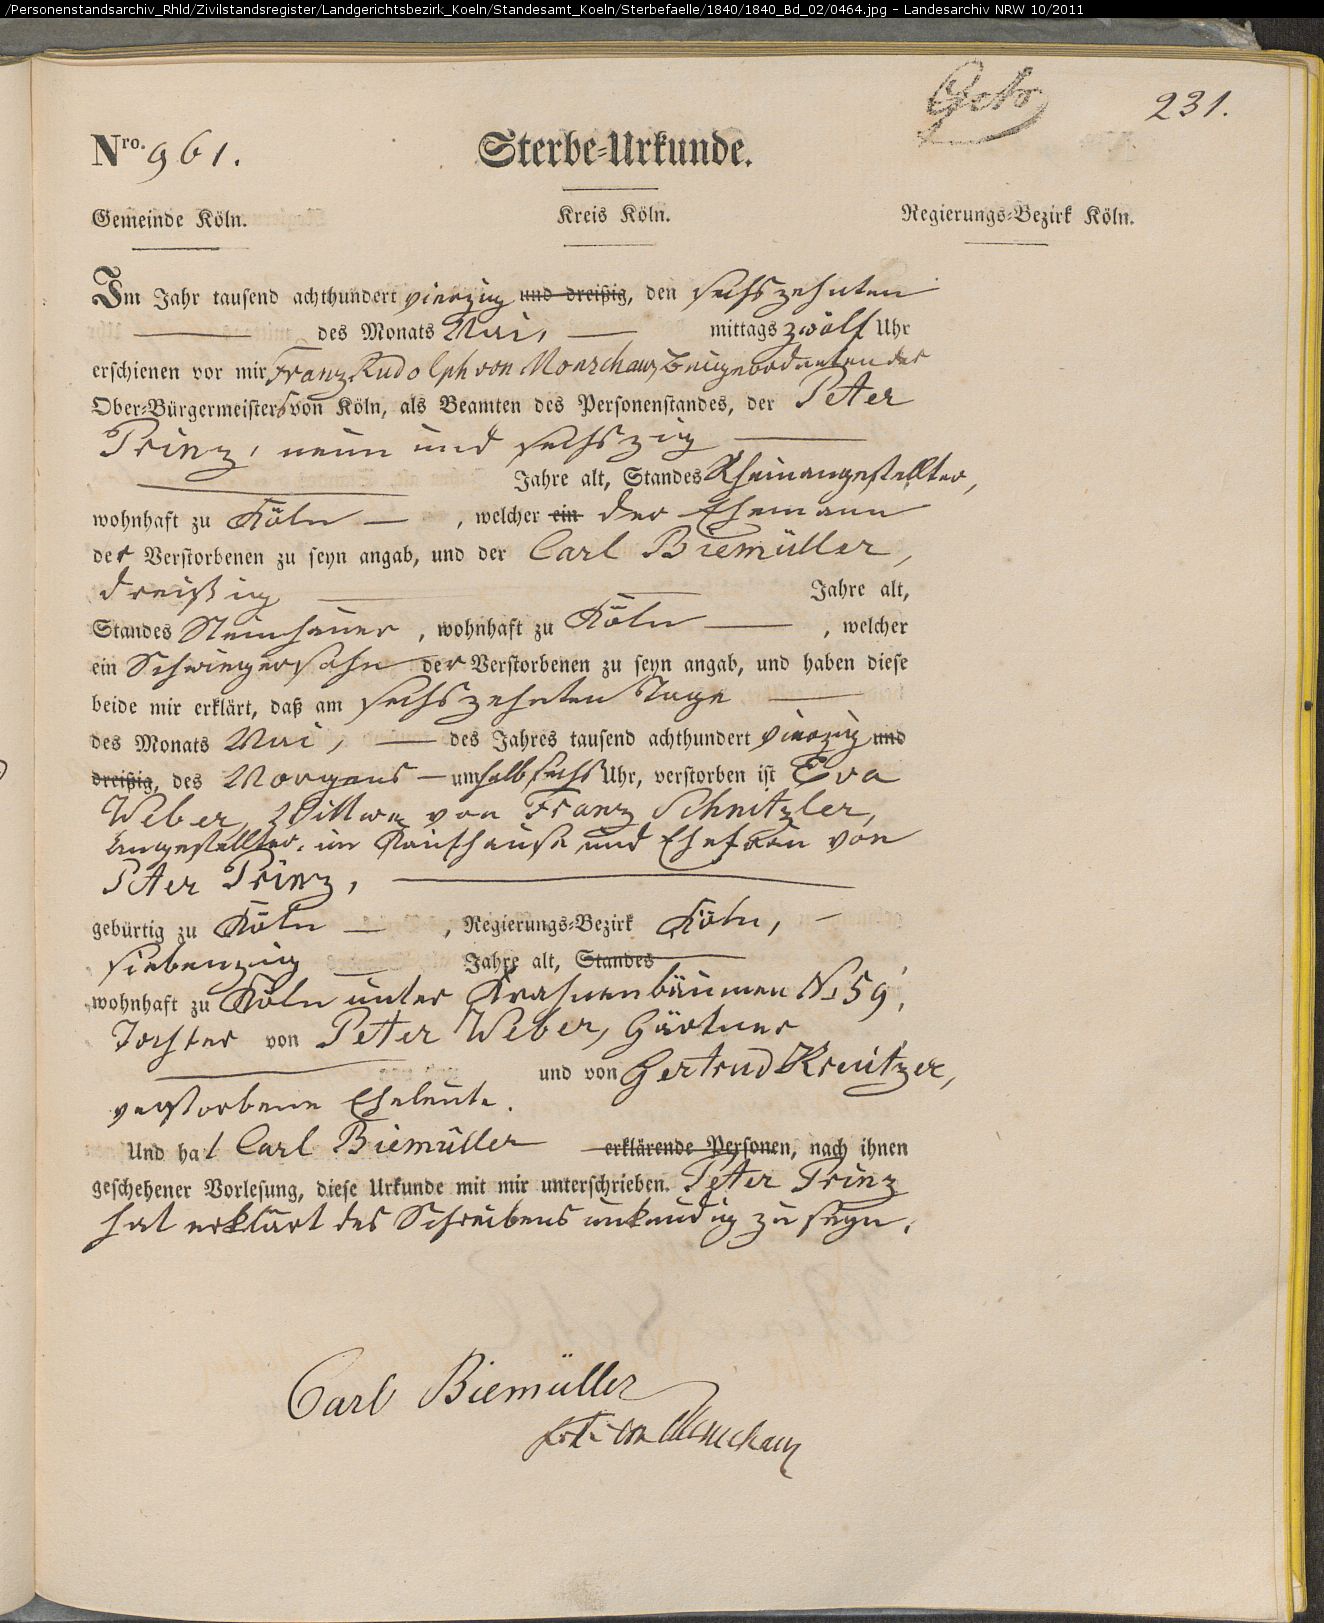 /Personenstandsarchiv_Rhld/Zivilstandsregister/Landgerichtsbezirk_Koeln/Standesamt_Koeln/Sterbefaelle/1840/1840_Bd_02/0464.jpg - Landesarchiv NRW 10/2011
231.
Nro. 961.
Sterbe-Urkunde.
Gemeinde Köln. Kreis Köln. Regierungs-Bezirk Köln.
Im Jahr tausend achthundert vierzig und dreißig, den sechszehnten
des Monats Mai, mittags zwölf Uhr
erschienen vor mir Franz Rudolph von Monschaw, Beigeordneten des
Ober-Bürgermeisters von Köln, als Beamten des Personenstandes, der Peter
Prinz, neun und sechszig
Jahre alt, Standes Rheinangestellter,
wohnhaft zu Köln, welcher ein der Ehemann
der Verstorbenen zu seyn angab, und der Carl Biemüller,
dreißig Jahre alt,
Standes Steinhauer, wohnhaft zu Köln, welcher
ein Schwiegersohn der Verstorbenen zu seyn angab, und haben diese
beide mir erklärt, daß am sechszehnten Tage
des Monats Mai, des Jahres tausend achthundert vierzig und
dreißig, des Morgens um halb sechs Uhr, verstorben ist Eva
Weber, Wittwe von Franz Schnitzler,
Angestellter im Kaufhause und Ehefrau von
Peter Prinz,
gebürtig zu Köln, Regierungs-Bezirk Köln,
siebenzig Jahre alt, Standes
wohnhaft zu Köln unter Krahnenbäumen No 59,
Tochter von Peter Weber, Gärtner
und von Gertrud Kreutzer,
verstorbene Eheleute.
Und hat Carl Biemüller erklärende Personen, nach ihnen
geschehener Vorlesung, diese Urkunde mit mir unterschrieben. Peter Prinz
hat erklärt des Schreibens unkundig zu seyn.
Carl Biemüller
von Monschaw